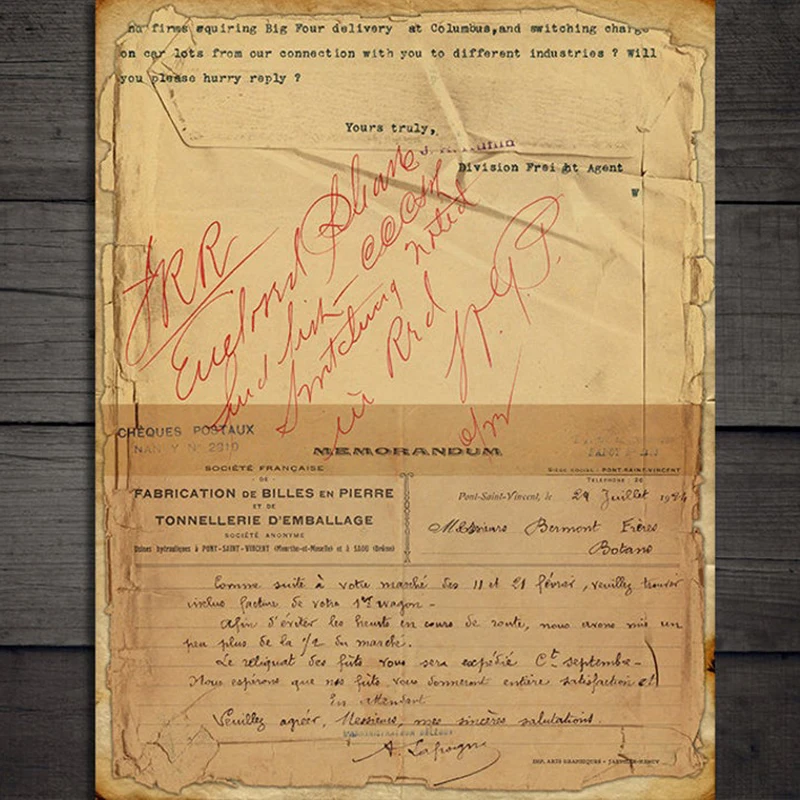 no firms squiring Big Four delivery at Columbus,and switching charge
on car lots from our connection with you to different industries ? Will
you please hurry reply ?
Yours truly,
Division Freight Agent
W
Enclosed
and list CCC&St
switching noted
in Red
CHÈQUES POSTAUX
NANCY Nº 2910
MEMORANDUM
SIÈGE SOCIAL : PONT-SAINT-VINCENT
TÉLÉPHONE : 20
SOCIÉTÉ FRANÇAISE
DE
FABRICATION DE BILLES EN PIERRE
ET DE
TONNELLERIE D'EMBALLAGE
SOCIÉTÉ ANONYME
Usines hydrauliques à PONT-SAINT-VINCENT (Meurthe-et-Moselle) et à SAOU (Drôme)
Pont-Saint-Vincent, le 29 Juillet 1924
Messieurs Bermont Frères
Botans
Comme suite à votre marché des 11 et 21 février, veuillez trouver
inclus facture de votre 1er wagon -
Afin d'éviter les heurts en cours de route, nous avons mis un
peu plus de la 1/2 du marché.
Le reliquat des fûts vous sera expédié Ct septembre -
Nous espérons que nos fûts vous donneront entière satisfaction et
En attendant
Veuillez agréer, Messieurs, mes sincères salutations.
IMP. ARTS GRAPHIQUES